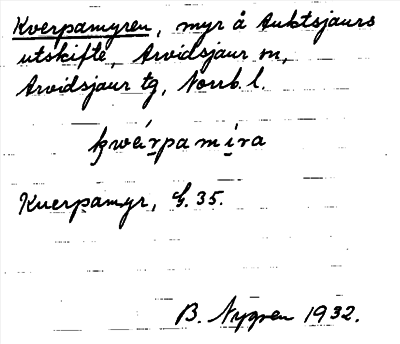 Kverpamyren, myr å Auktsjaurs
utskifte, Arvidsjaur sn,
Arvidsjaur tg, Norrb. l.
kwǽrpamira
Kuerpamyr, G. 35.
B. Nygren 1932.